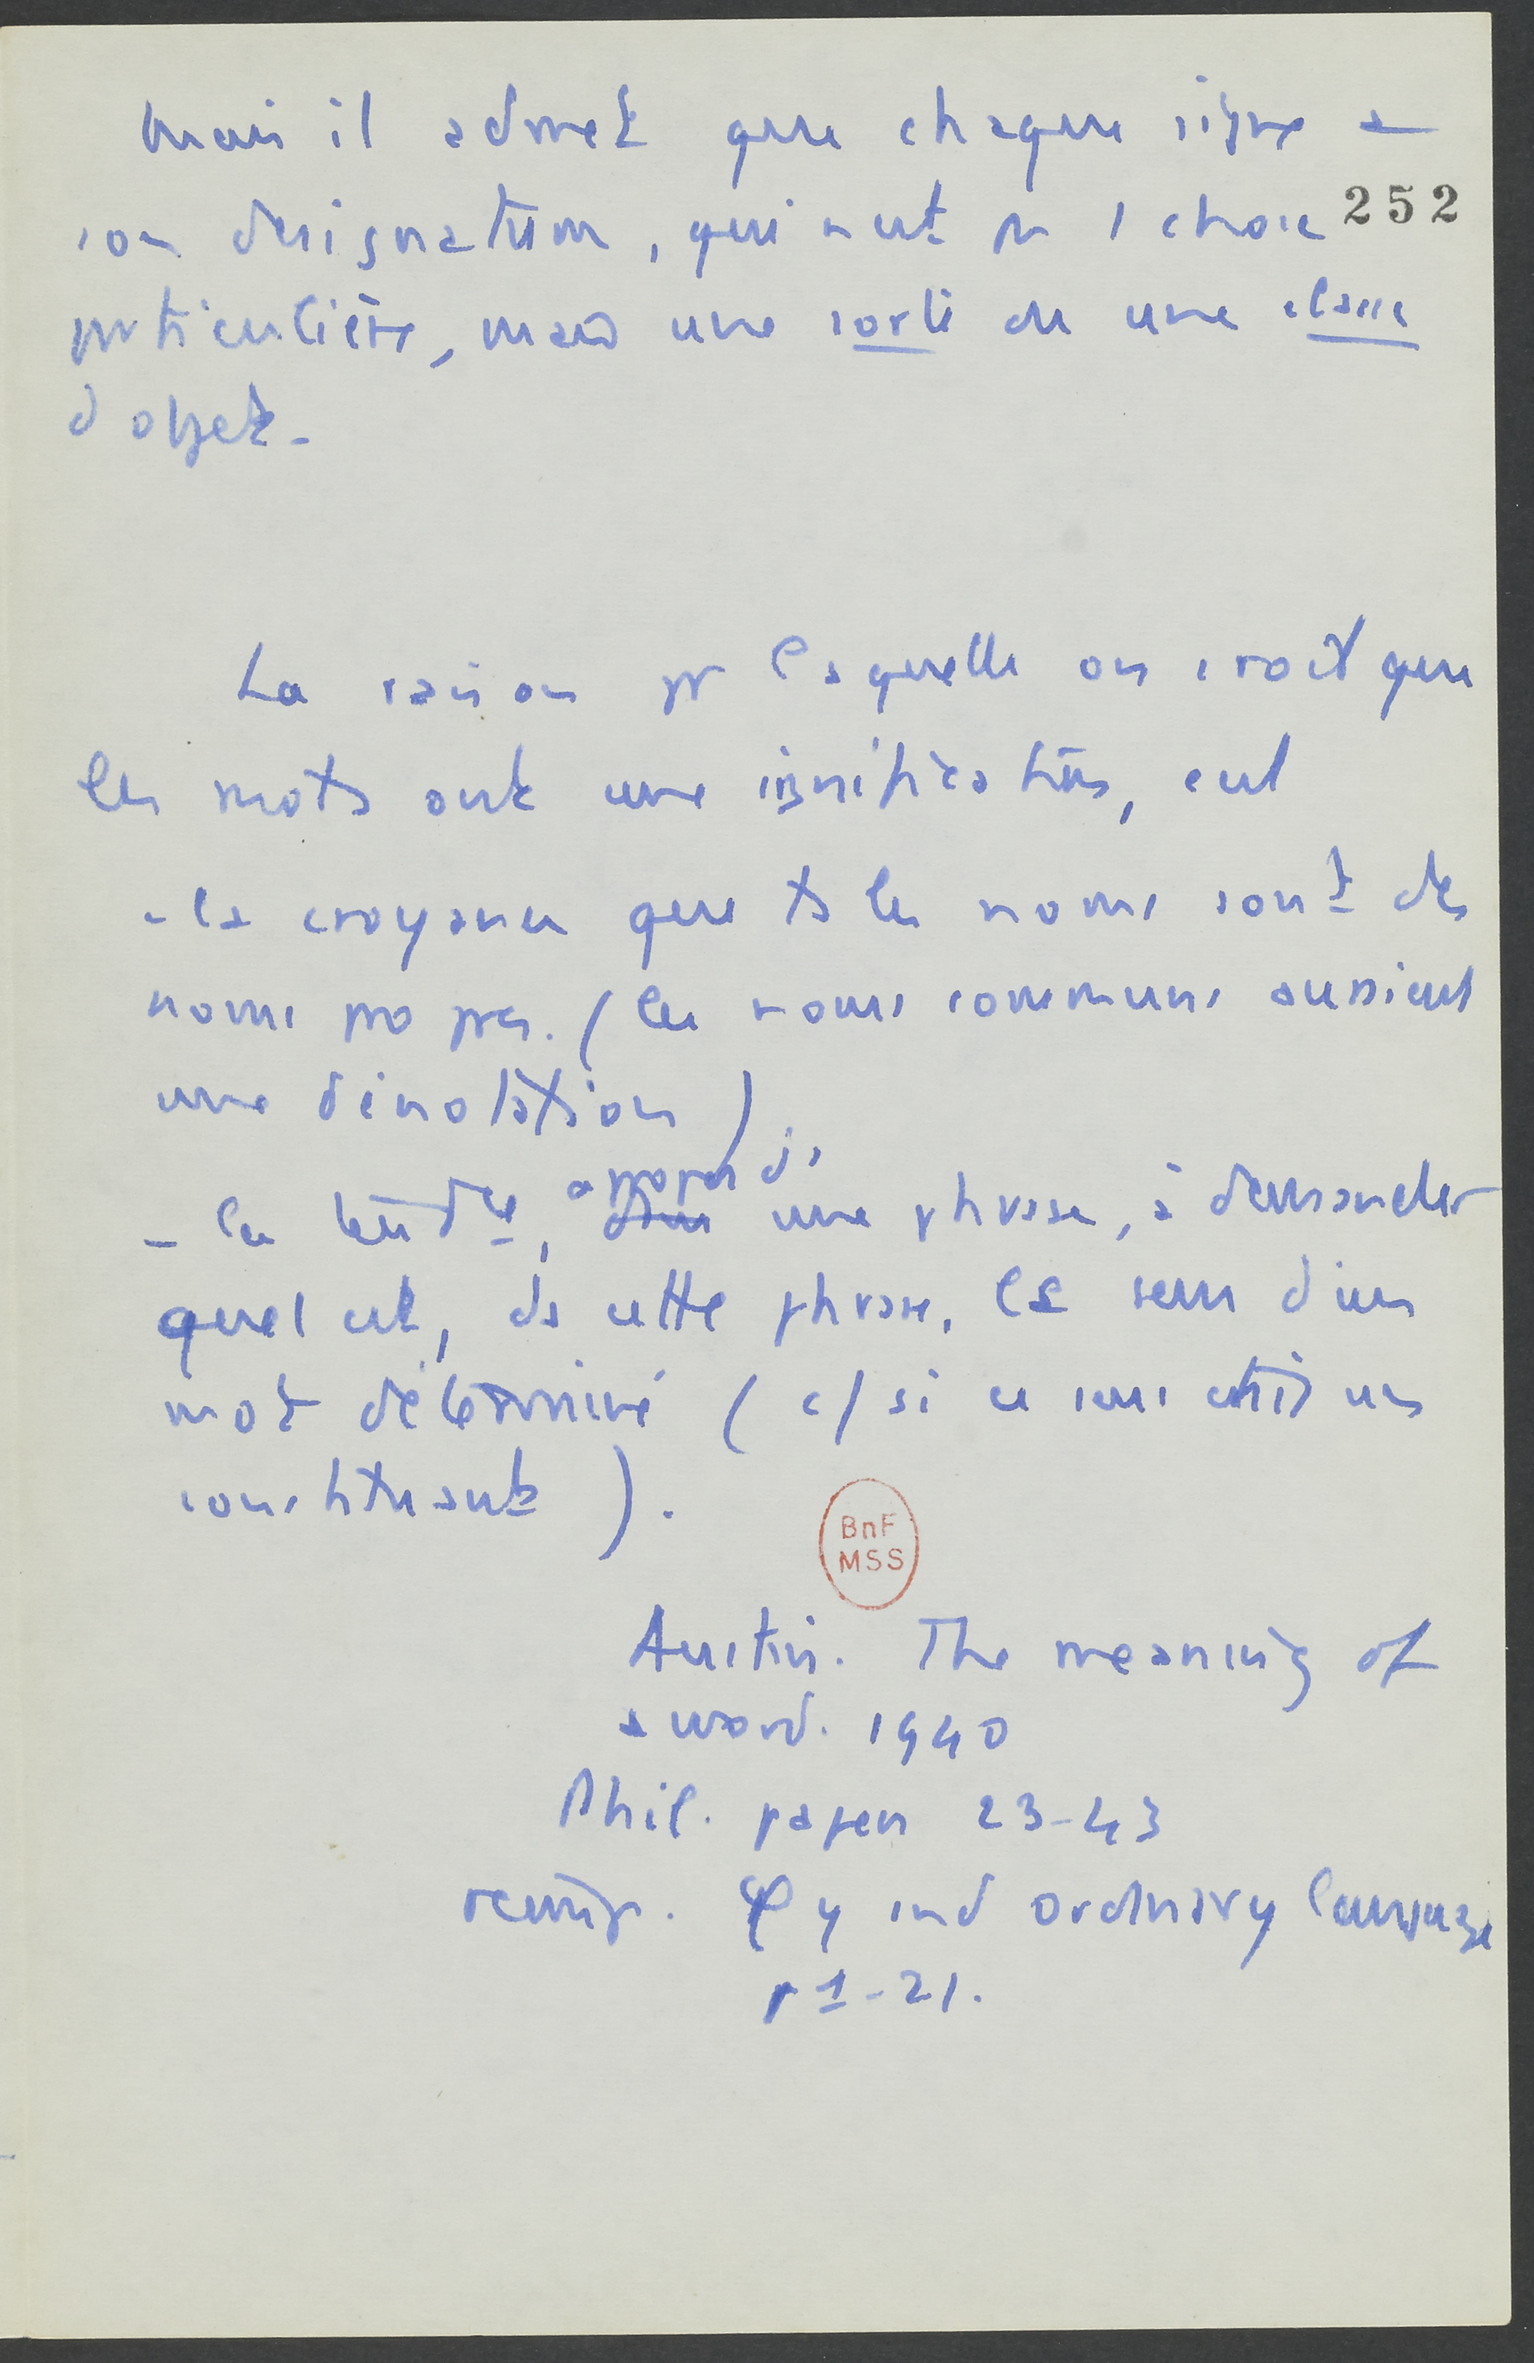 Mais il admet que chaque signe a
252
son designatum, qui n'est pas 1 chose
particulière, mais une sorte ou une classe
d'objets.
La raison pr laquelle on croit que
les mots ont une signification, est
- la croyance que ts les noms sont des
noms propres. (les noms communs auraient
une dénotation).
à propos d'
- la tendce, dans une phrase, à demander
quel est, ds cette phrase, le sens d'un
mot déterminé (c/ si ce sens était un
constituant).
BnF
MSS
Austin. The meaning of
a word. 1940
Phil. papers 23-43
réimp. φy and ordinary language
p 1-21.